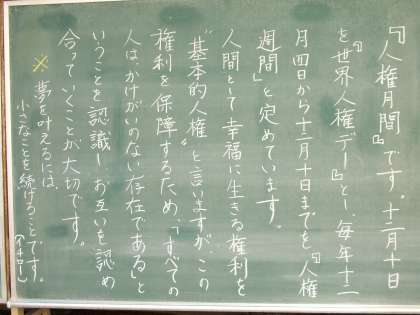 『人権月間』です。十二月十日
を『世界人権デー』とし、毎年十二
月四日から十二月十日までを、『人権
週間』と定めています。
人間として幸福に生きる権利を
"基本的人権"と言いますが、この
権利を保障するため、「すべての
人は、かけがいのない存在である」と
いうことを認識し、お互いを認め
合っていくことが大切です。
※夢を叶えるには、
小さなことを続けることです。
(イチロー)